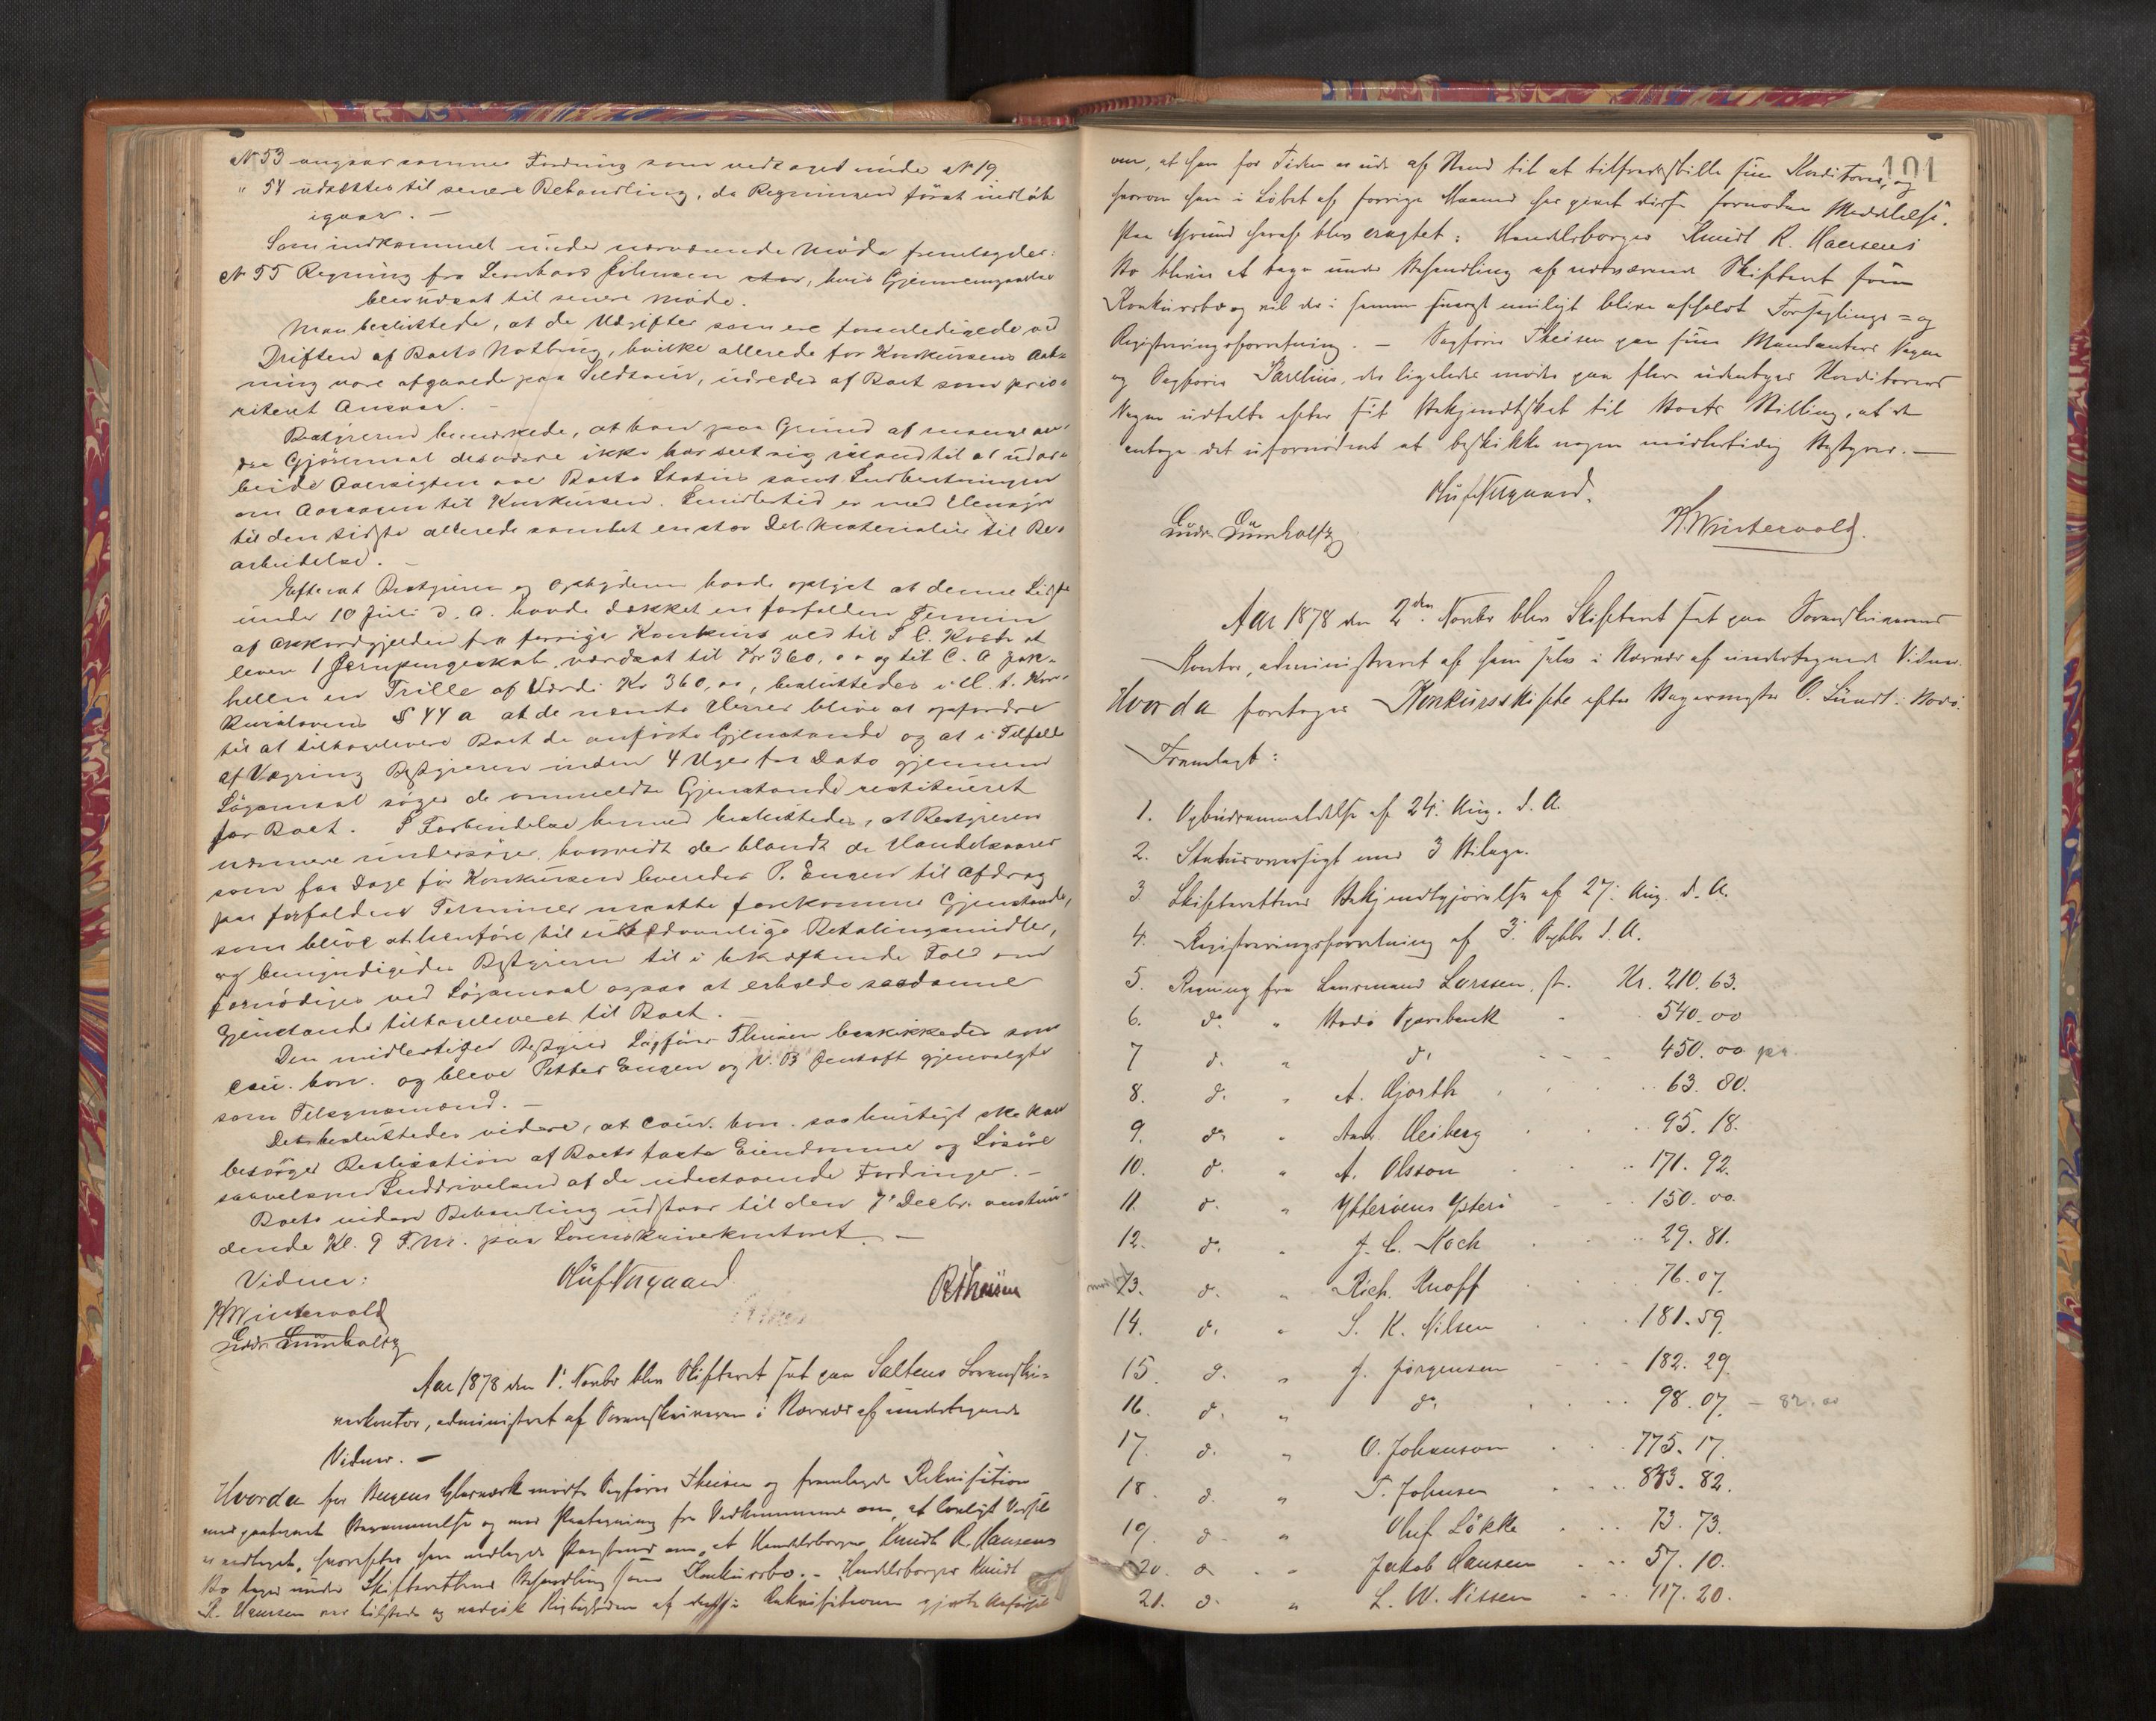 No 53 angaar samme Fordring som vedtaget under No 19.
" 54 udsættes til senere Behandling, da Regningen først indløb
igaar. —
Som indkommet under nærværende Møde fremlagdes:
No 55 Regning fra Lenthars Johnsen, hvis Gjennemgaaelse
blev udsat til senere Møde.
Man besluttede, at de Udgifter som ere foranledigede ved
Driften af Boets Notbrug, hvilke allerede før Konkursens Aab-
ning vare afgaaede paa Sildsaeir, udredes af Boet som prio-
riteret Ansvar. —
Bestyreren bemærkede, at han paa Grund af mange an-
dre Gjøremaal desværre ikke har seet sig istand til at udar-
beide Oversigten over Boets Status samt Indberetningen
om Aarsagen til Konkursen. Imidlertid er med Hensyn
til den sidste allerede samlet en stor Del Materialier til Be-
arbeidelse. —
Efterat Bestyreren og Opbyderen havde oplyst at denne Sidste
under 10 Juli d. A. havde dækket en forfalden Termin
af Akkordgjælden fra forrige Konkurs ved til I C. Koch at
levere 1 Jernpengeskab, værdsat til Kr 360,00 og til C. A.
hellen en Trille af Værdi Kr 360,00, besluttedes i H. t. Kon-
kurslovens § 44 a at de nævnte Herrer blive at opfordre
til at tilbagelevere Boet de anførte Gjenstande og at i Tilfælde
af Vægring Bestyreren inden 4 Uger fra Dato gjennem
Søgsmaal søger de ommeldte Gjenstande restitueret
for Boet. I Forbindelse hermed besluttedes, at Bestyreren
nærmere undersøger, hvorvidt der blandt de Handelsvarer
som faa Dage før Konkursen leveredes P. Engen til Afdrag
paa forfaldne Terminer maatte forekomme Gjenstande,
som blive at henføre til usædvanlige Betalingsmidler,
og bemyndigedes Bestyreren til i bekræftende Fald om
fornødiges ved Søgsmaal ogsaa at erholde saadanne
Gjenstande tilbageleveret til Boet. —
Den midlertidige Bestyrer Sagfører Theisen beskikkedes som
cur. bon. og bleve Petter Engen og N. B Jentoft gjenvalgte
som Tilsynsmænd. —
Det besluttedes videre, at cur. bon. saa hurtigt ske kan
besørger Realisation af Boets faste Eiendomme og Løsøre
saavelsom Inddrivelsen af de udestaaende Fordringer. —
Boets videre Behandling udstaar til den 7' Decbr. anstun-
dende Kl. 9 F.M. paa Sorenskriverkontoret. —
Vidner:
Oluf Norgaard
RTheisen
HWintervold
Ludv. Lumholtz
Aar 1878 den 1' Novbr blev Skifteret sat paa Saltens Sorenskri-
verkontor, administreret af Sorenskriveren i Nærvær af undertegnede
Vidner. —
Hvorda for Bergens Glasværk mødte Sagfører Theisen og fremlagde Rekvisition
med paategnet Berammelse og med Paategning fra Vedkommende om, at lovligt Varsel
er vedtaget, hvorefter han nedlagde Paastand om, at Handelsborger Knudt R. Hansens
Bo tages under Skifterettens Behandling som Konkursbo. – Handelsborger Knudt
R. Hansen var tilstede og vedgik Rigtigheden af den i Rekvisitionen gjorte Anførsel
101
om, at han for Tiden er ude af Stand til at tilfredsstille sine Kreditorer, og
hvorom han i Løbet af forrige Maaned har givet disse fornøden Meddelelse.
Paa Grund heraf blev eragtet: Handelsborger Knudt R. Hansens
Bo bliver at tage under Behandling af nærværende Skifteret som
Konkursbo og vil der i samme snarest muligt blive afholdt Forseglings- og
Registreringsforretning. — Sagfører Theisen paa sine Mandanters Vegne
og Sagfører Parelius, der ligeledes mødte paa flere udenbyes Kreditorers
Vegne udtalte efter sit Bekjendtskab til Boets Stilling, at de
antage det ufornødent at beskikke nogen midlertidig Bestyrer. —
Oluf Norgaard.
Ludv. Lumholtz
HWintervold.
Aar 1878 den 2den Novbr blev Skifteret sat paa Sorenskriverens
Kontor, administreret af ham selv i Nærvær af undertegnede Vidner.
Hvorda foretoges Konkursskifte efter Bagermester O. Lund i Bodø.
Fremlagt:
1. Opbudsanmeldelse af 24' Aug. d. A.
2. Statusoversigt med 3 Bilage.
3 Skifterettens Bekjendtgjørelse af 27' Aug. d. A.
4. Registreringsforretning af 3' Septbr d. A.
5. Regning fra Lensmand Larssen, st. Kr. 210. 63.
6. do " Bodø Sparebank " 540. 00
7 d. " d. - - - 450. 00 pr.
8. d. " A. Hjorth . . 63. 80.
9. do " And. Heiberg . . 95. 18.
10. d. " A. Olsson . . 171. 92.
11. d. " Ytterøens Ysteri - - 150. 00.
12. d. " J. C. Koch . . 29. 81.
13. d. " Rich. Knoff . . 76. 07.
14. d. " S. K. Nilsen . . 181. 59.
15. d. " J. Jørgensen - - 182. 29.
16. d. " do . . 98. 07. – 82. 00
17. d. " O. Johanson . . 775. 17.
18. d. " T. Johnsen . . 883. 82.
19. d. " Oluf Løkke . . 73. 73.
20. d. " Jakob Hansen . . 57. 10.
21. d. " L. W. Nissen . . 117. 20.